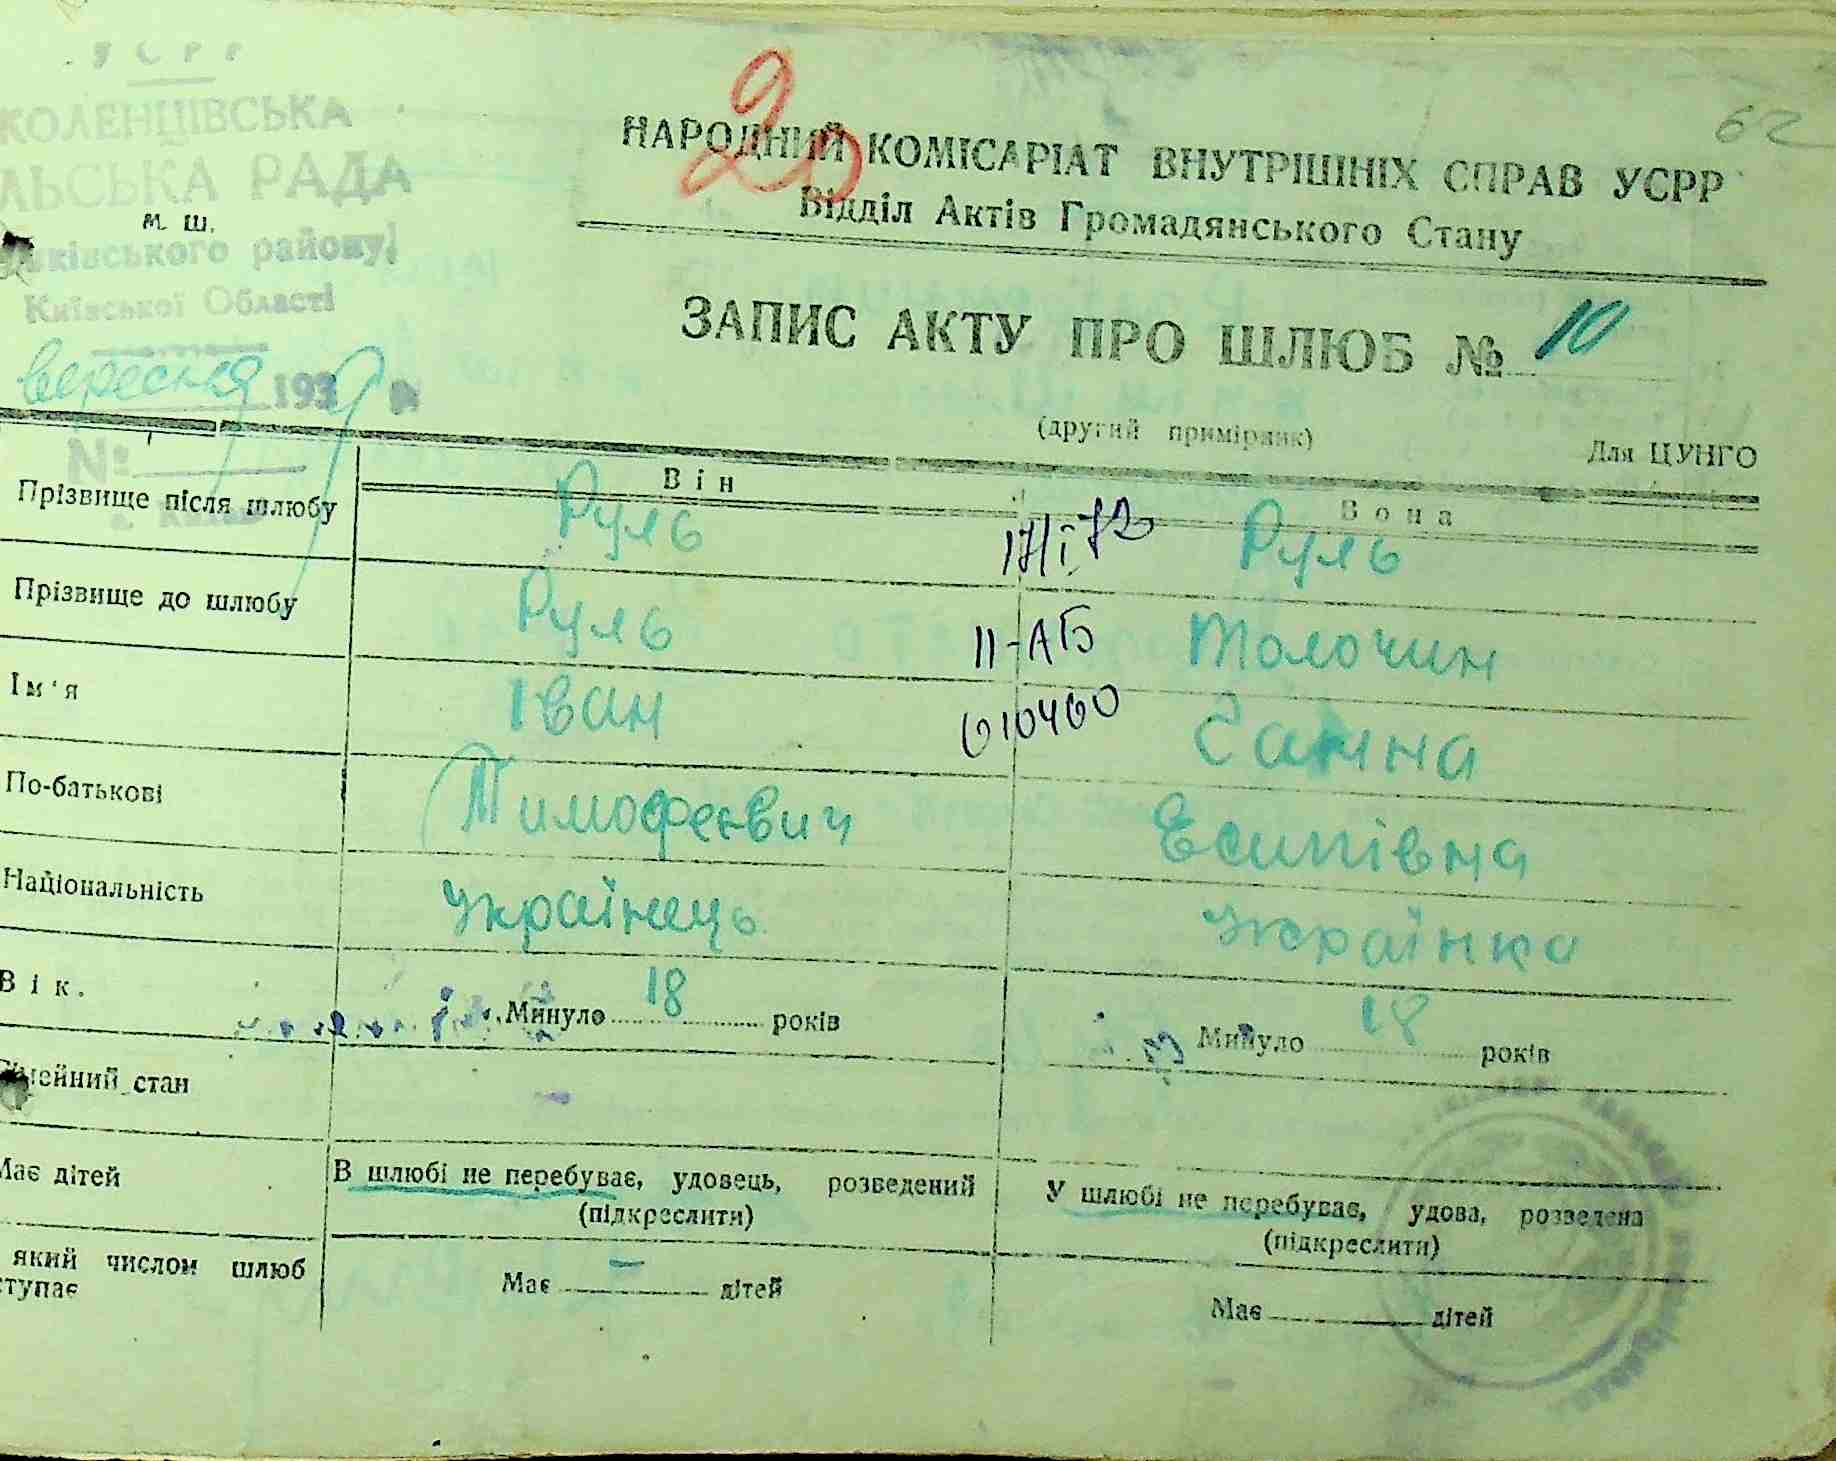 УСРР
КОЛЕНЦІВСЬКА
ЛЬСЬКА РАДА
М. Ш.
ківського району
Київської Області
вересня 193 р
№
62
20
НАРОДНИЙ КОМІСАРІАТ ВНУТРІШНІХ СПРАВ УСРР
Відділ Актів Громадянського Стану
ЗАПИС АКТУ ПРО ШЛЮБ № 10
(другий примірник) Для ЦУНГО
Він Вона
Прізвище після шлюбу Руль 17/I 72 Руль
Прізвище до шлюбу Руль ІІ-АБ Толочин
Ім'я Іван 610460 Ганна
По-батькові Тимофеєвич Есипівна
Національність Українець Українка
Вік. Минуло 18 років Минуло 18 років
мейний стан
Має дітей В шлюбі не перебуває, удовець, розведений У шлюбі не перебуває, удова, розведена
(підкреслити) (підкреслити)
який числом шлюб
ступає Має - дітей Має дітей